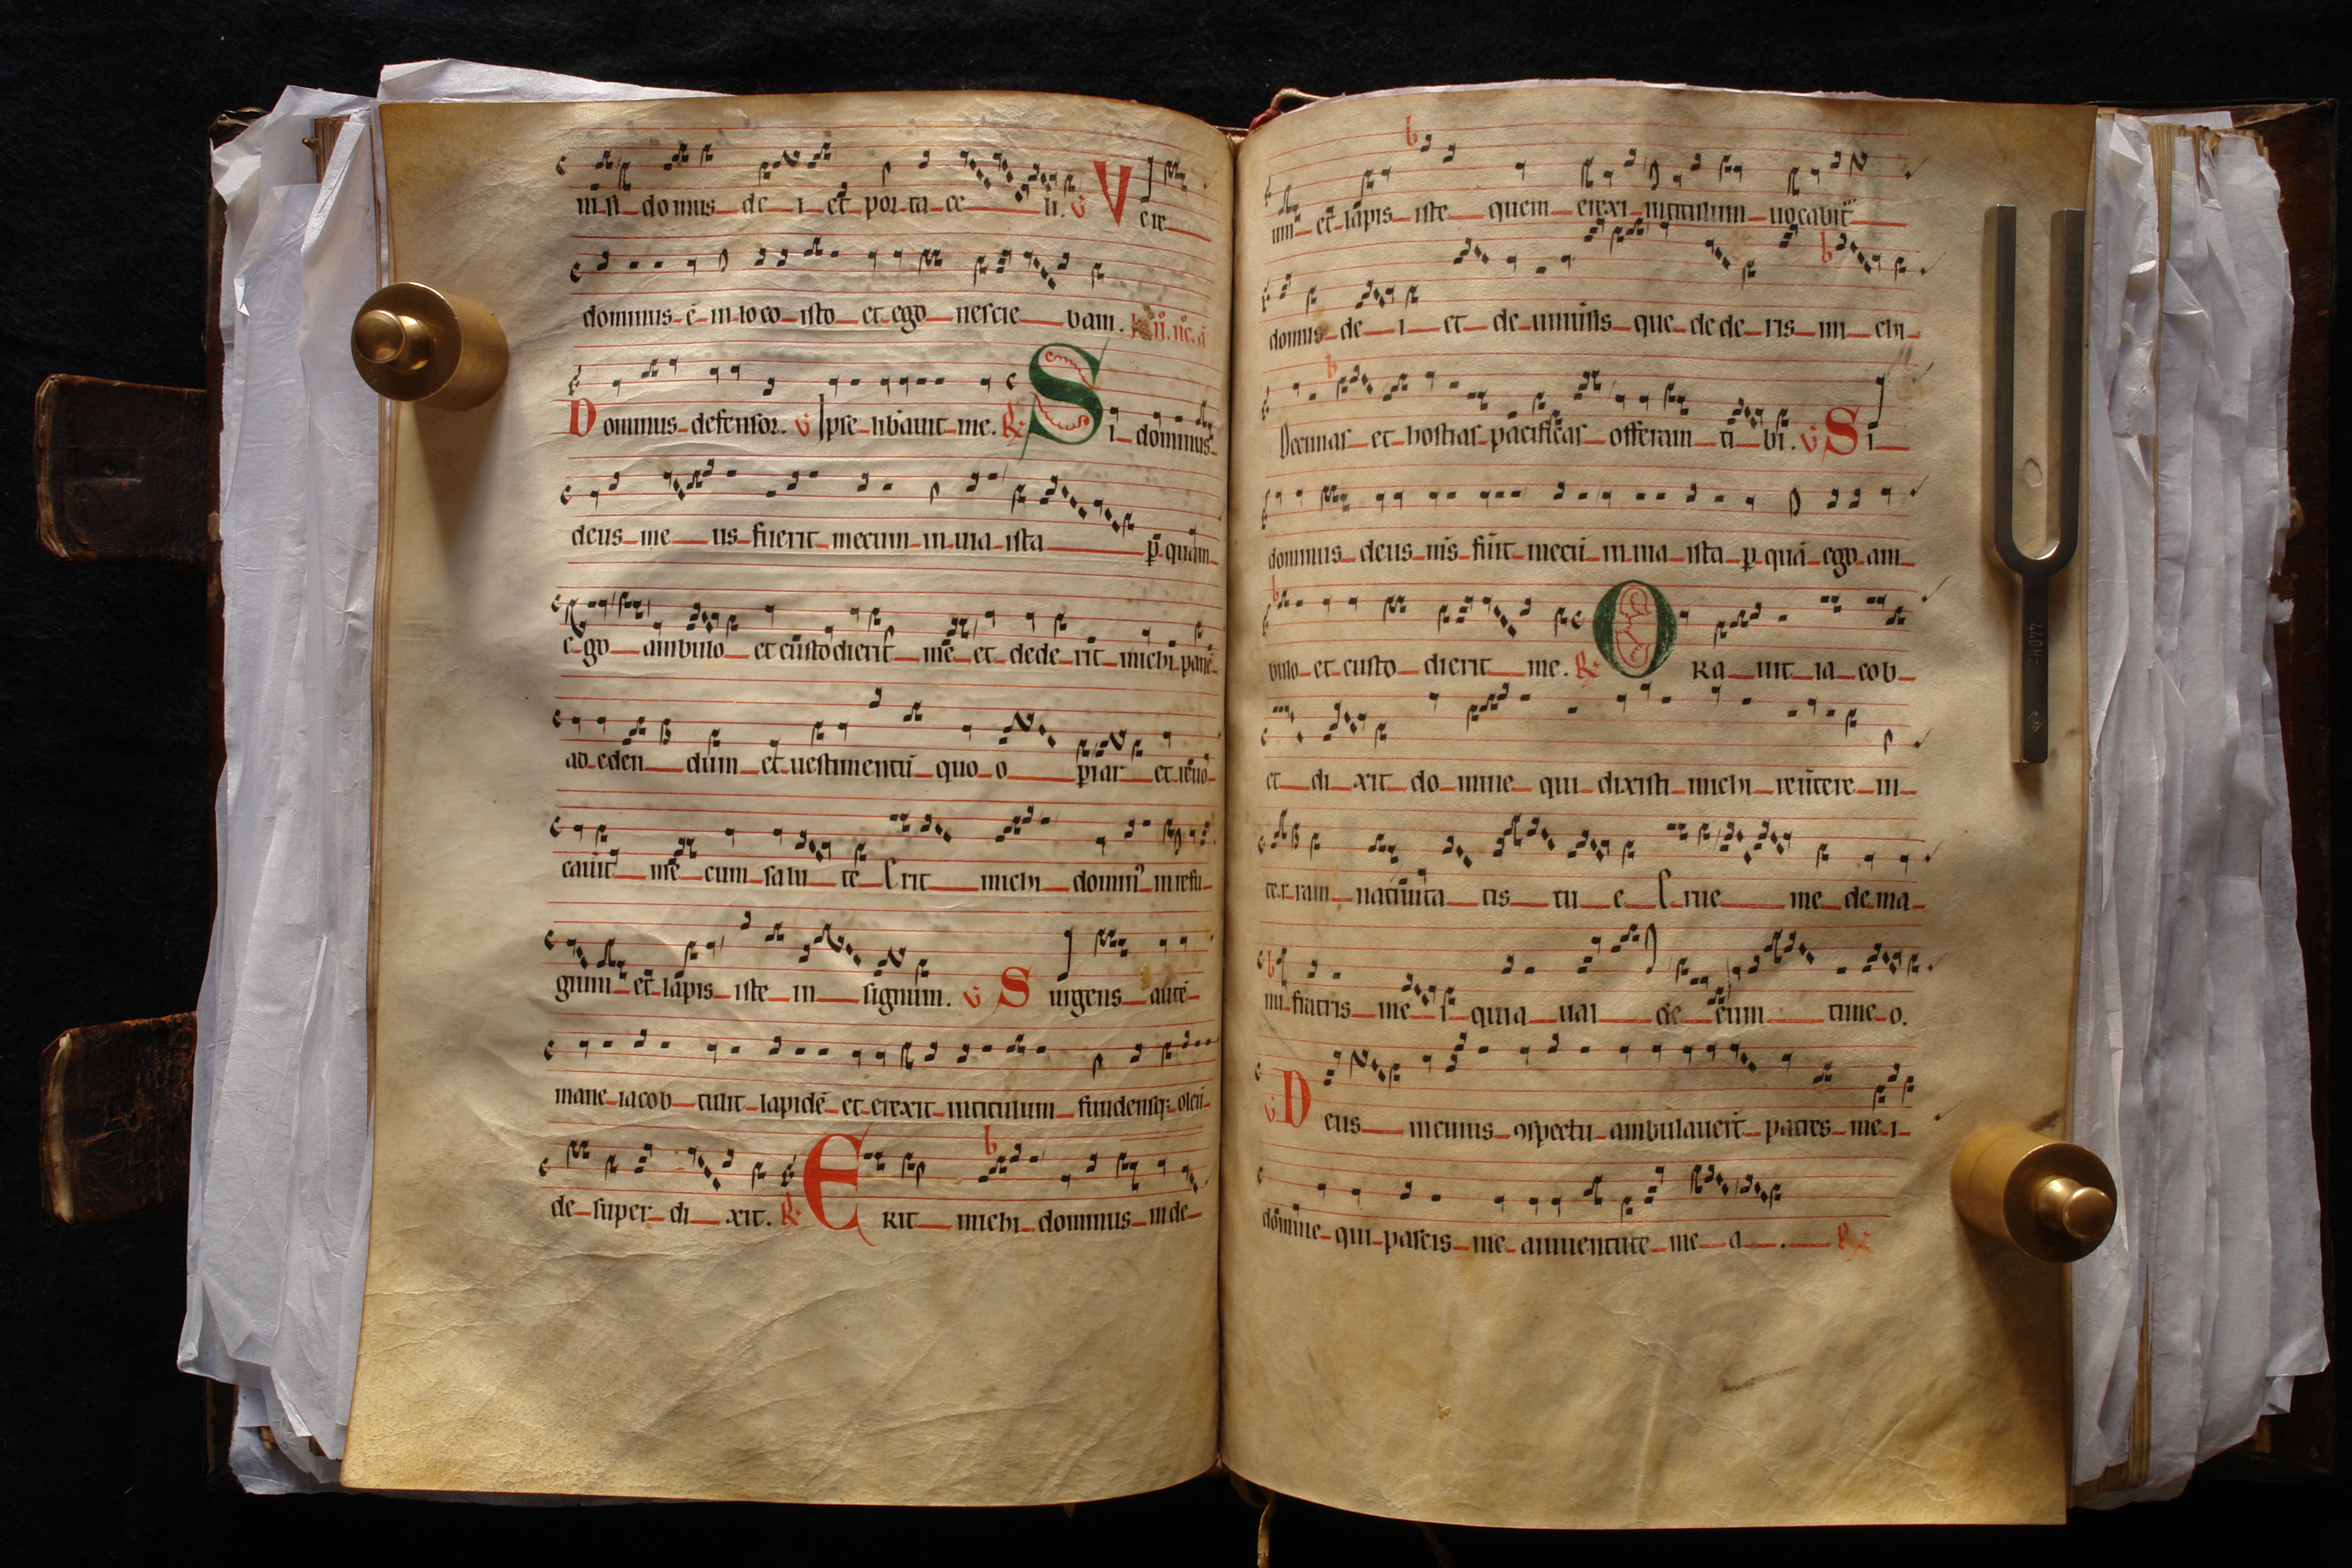 nisi domus de i et por ta ce li. V Vere
dominus ē in loco isto et ego nescie bam.
Dominus defensor. V Ipse libāuit me. R Si dominus
deus me us fuerit mecum in uia ista p quam
e go ambulo et cūstodierit me et dede rit michi panē
ad eden dum et uestimentū quo o piar et reuo
cauīt me cum salu te Erit michi domin' in refu
gium et lapis iste in signum. V Surgens autē
mane iacob tulit lapidē et erexit in titulum fundensq; oleū
de super di xit. R Erit michi dominus in de
um et lapis iste quem erexi in titulum uocabit
domus de i et de uniūsis que dede ris mi chi
Decimas et hostias pacificas offeram ti bi. V Si
dominus deus mīs fūit mecū in uia ista p quā ego am
bulo et custo dierit me. R Ora uit ia cob
et di xit do mine qui dixisti michi reūtere in
ter ram natiuita tis tu e Erue me de ma
nu fratris me i quia ual de eum time o.
V Deus in cuius ɔspectu ambulauerūt patres me i
domine qui pascis me a iuuentute me a . R